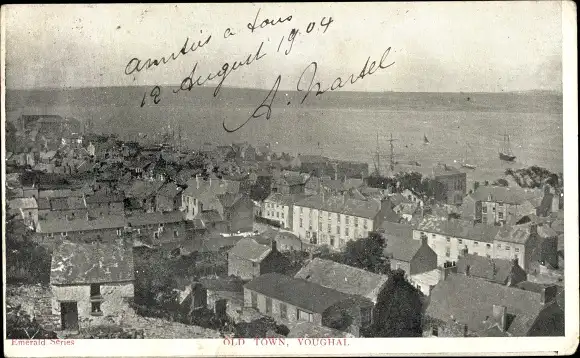 amitiés a tous
12 August 1904
A. Martel
Emerald Series
OLD TOWN, YOUGHAL